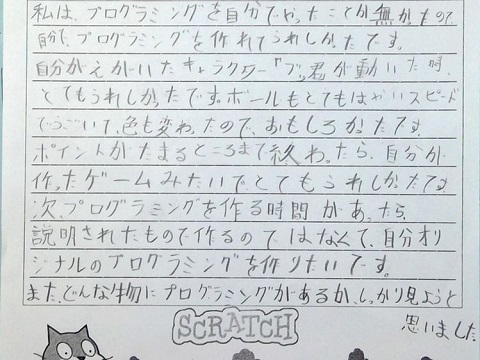 私は、プログラミングを自分でやったことが無かったので
自分で、プログラミングを作れてうれしかったです。
自分がえがいたキャラクター「ブッ君」が動いた時、
とてもうれしかったです。ボールもとてもはやいスピード
でうごいて、色も変わったので、おもしろかったです。
ポイントがたまるところまで終わったら、自分が
作ったゲームみたいでとてもうれしかったです。
次、プログラミングを作る時間があったら、
説明されたもので作るのではなくて、自分オリ
ジナルのプログラミングを作りたいです。
また、どんな物にプログラミングがあるか、しっかり見ようと
思いました
SCRATCH